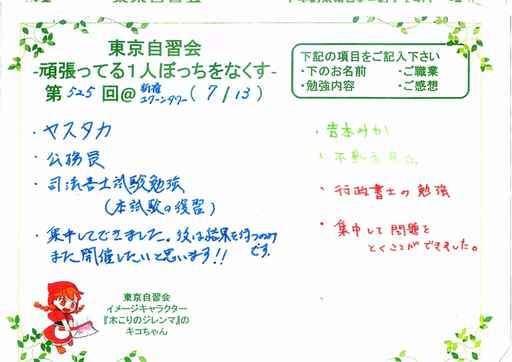 東京自習会
-頑張ってる1人ぼっちをなくす-
第525回@新宿エクーンタワー(7/13)
下記の項目をご記入下さい
・下のお名前 ・ご職業
・勉強内容 ・ご感想
・ヤスタカ
・公務員
・司法書士試験勉強
(本試験の復習)
・集中してできました。後は結果を待つのみです。
また開催したいと思います!!
・吉本みか
・行政書士の勉強
・集中して問題を
とくことができました。
東京自習会
イメージキャラクター
『木こりのジレンマ』の
キコちゃん